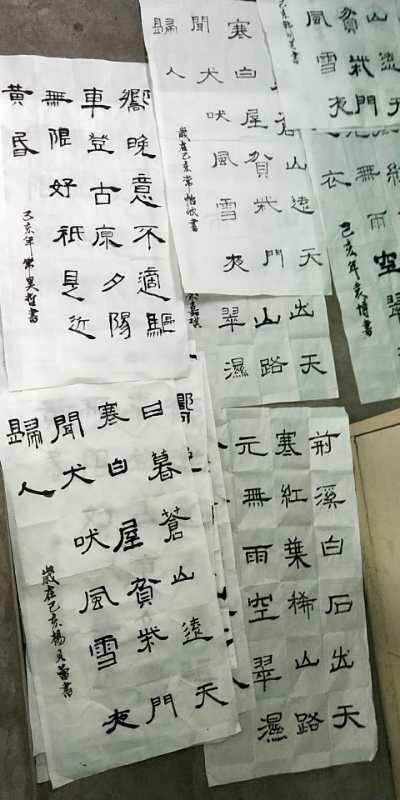 嚮晚意不適驅
車登古原夕陽
無限好祇是近
黃昏
己亥年常昊哲書
蒼山遠天
寒白屋貧柴門
聞犬吠風雪夜
歸人
歲在己亥常怡欣書
山遠天
貧柴門
風雪夜
無雨空翠
衣
己亥年袁博書
出天
山路
翠濕
日暮蒼山遠天
寒白屋貧柴門
聞犬吠風雪夜
歸人
歲在己亥楊貝蕾書
荊溪白石出天
寒紅葉稀山路
元無雨空翠濕
人